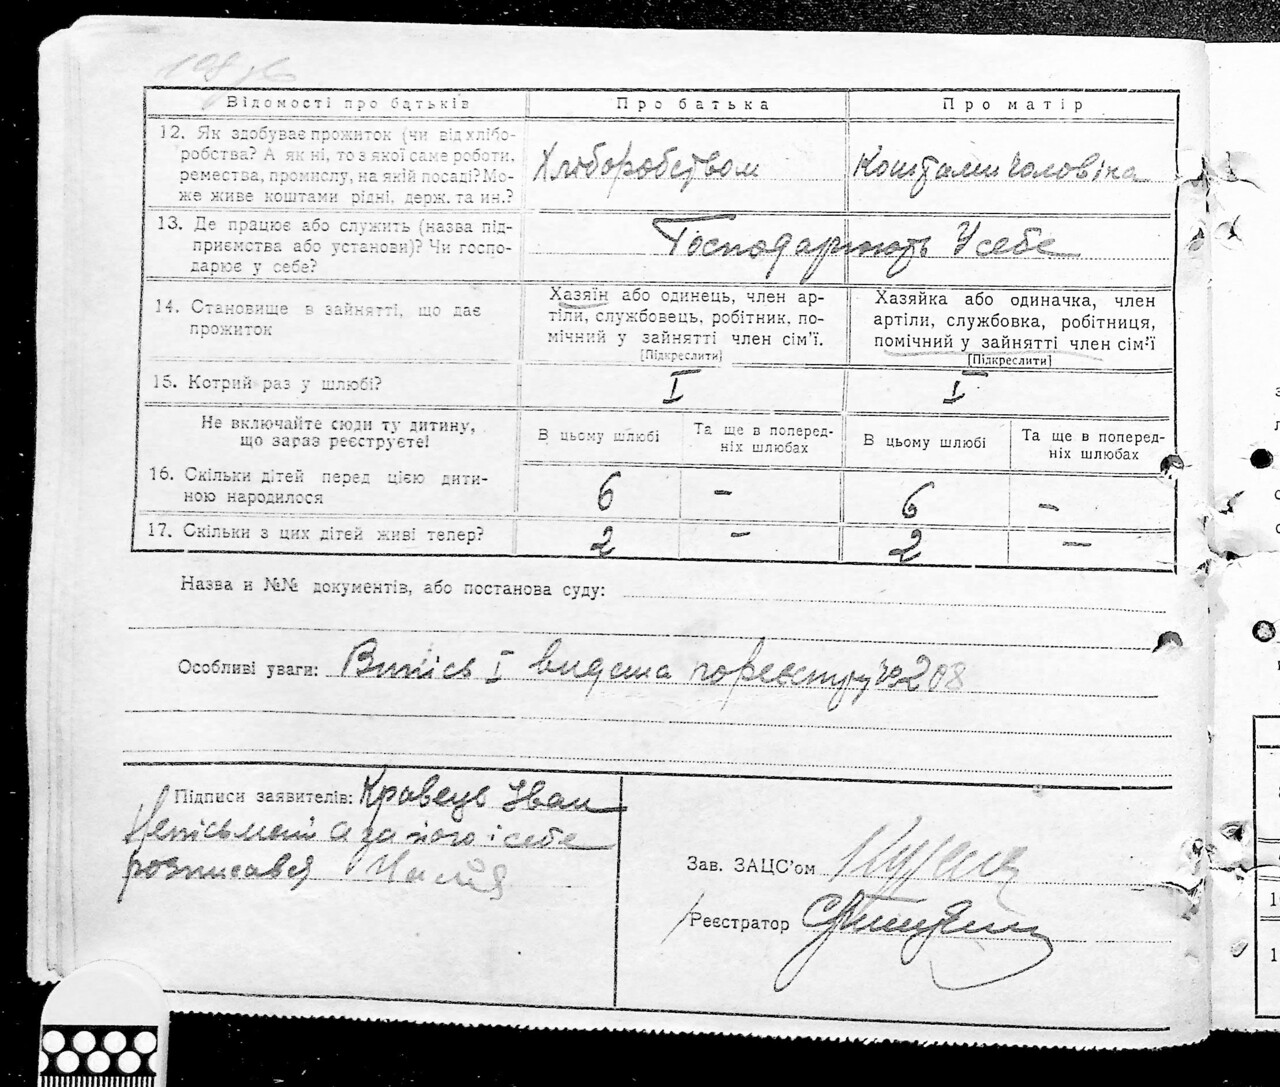 Відомості про батьків Про батька Про матір
12. Як здобуває прожиток (чи від хлібо-
робства? А як ні, то з якої саме роботи,
ремества, промислу, на якій посаді? Мо-
же живе коштами рідні, держ. та ин.?
Хліборобством Коштами чоловіка
13. Де працює або служить (назва під-
приємства або установи)? Чи госпо-
дарює у себе?
Господарюють У себе
14. Становище в зайнятті, що дає
прожиток
Хазяїн або одинець, член ар-
тіли, службовець, робітник, по-
мічний у зайнятті член сім'ї.
[Підкреслити]
Хазяйка або одиначка, член
артіли, службовка, робітниця,
помічний у зайнятті член сім'ї
[Підкреслити]
15. Котрий раз у шлюбі? I I
Не включайте сюди ту дитину,
що зараз реєструєте!
В цьому шлюбі
Та ще в поперед-
ніх шлюбах
В цьому шлюбі
Та ще в поперед-
ніх шлюбах
16. Скільки дітей перед цією дити-
ною народилося
6 - 6 -
17. Скільки з цих дітей живі тепер? 2 - 2 -
Назва и №№ документів, або постанова суду:
Особливі уваги: Випісь I видана по реєстру № 208
Підписи заявителів: Кравець Іван
Неписьмений а за його і себе
розписався
Зав. ЗАЦС'ом
Реєстратор